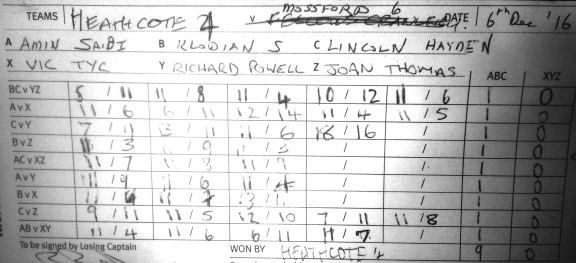 TEAMS HEATHCOTE 4 V MOSSFORD 6 DATE 6th Dec '16
A AMIN SAIBI B KLODIAN S C LINCOLN HAYDEN
X VIC TYC Y RICHARD POWELL Z JOAN THOMAS ABC XYZ
BCvYZ 5 / 11 11 / 8 11 / 4 10 / 12 11 / 6 1 0
AvX 11 / 6 6 / 11 12 / 14 11 / 4 11 / 5 1 0
CvY 7 / 11 13 / 11 11 / 6 18 / 16 / 1 0
BvZ 11 / 3 11 / 9 11 / 3 / / 1 0
ACvXZ 11 / 7 11 / 3 11 / 9 / / 1 0
AvY 11 / 9 11 / 6 11 / 4 / / 1 0
BvX 11 / 4 11 / 7 13 / 11 / / 1 0
CvZ 9 / 11 11 / 5 12 / 10 7 / 11 11 / 8 1 0
ABvXY 11 / 4 11 / 6 6 / 11 11 / 7 / 1 0
To be signed by Losing Captain WON BY HEATHCOTE 4 9 0